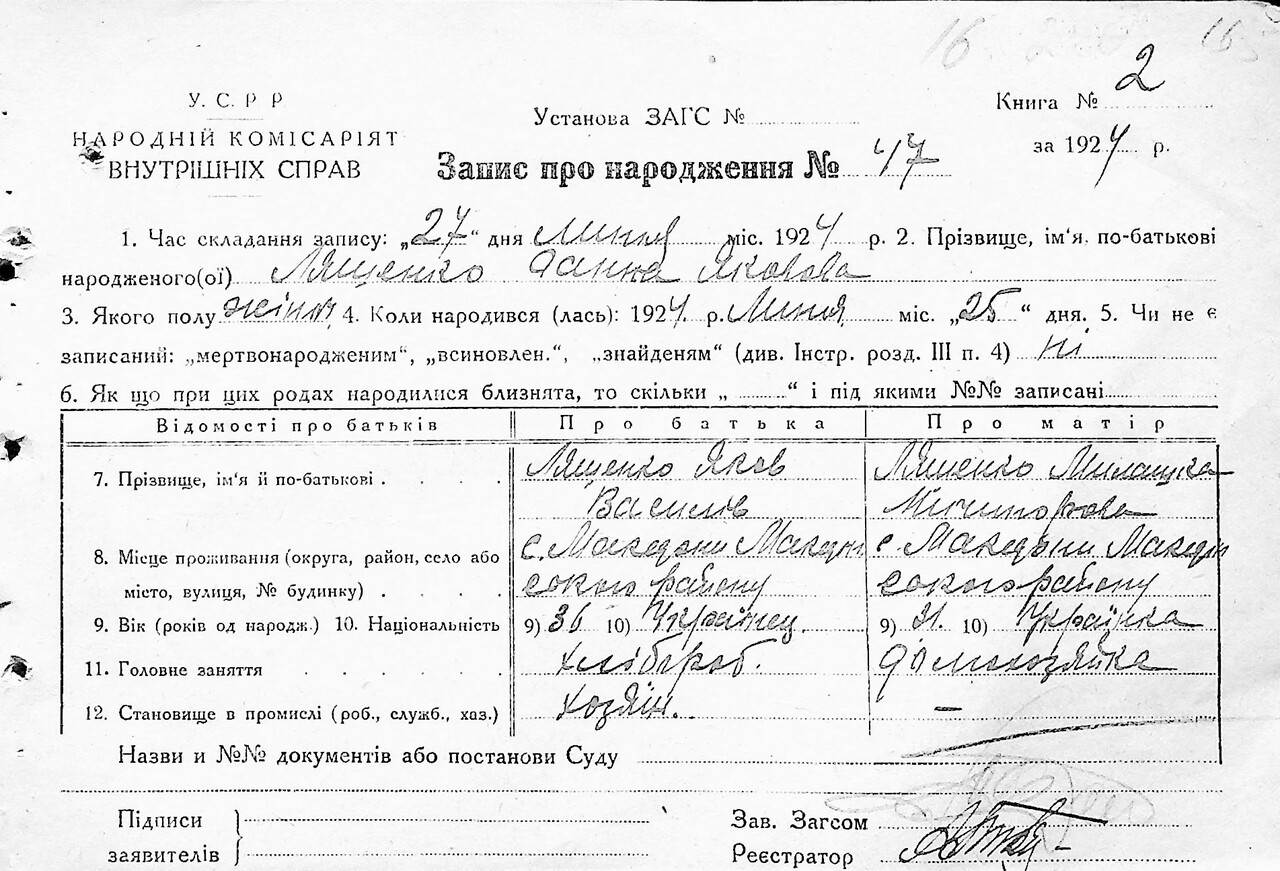 16 16
У. С. Р Р
НАРОДНІЙ КОМІСАРІЯТ
ВНУТРІШНІХ СПРАВ
Установа ЗАГС №
Книга № 2
за 1924 р.
Запис про народження № 47
1. Час складання запису: „27“ дня Липня міс. 1924 р. 2. Прізвище, ім'я, по-батькові
народженого(ої) Лященко Ганна Яковова
3. Якого полу жіноч. 4. Коли народився (лась): 1924 р. Липня міс. „25“ дня. 5. Чи не є
записаний: „мертвонародженим“, „всиновлен.“, „знайденям“ (див. Інстр. розд. III п. 4) Ні
6. Як що при цих родах народилися близнята, то скільки „ “ і під якими №№ записані
Відомості про батьків Про батька Про матір
7. Прізвище, ім'я й по-батькові Лященко Яков Василів Лященко
8. Місце проживання (округа, район, село або місто, вулиця, № будинку) с. Македони Македонського району с. Македони Македонського району
9. Вік (років од народж.) 10. Національність 9) 36 10) Українец 9) 31. 10) Українка
11. Головне заняття хлібороб. домохозяйка
12. Становище в промислі (роб., служб., хаз.) Хозяїн. –
Назви и №№ документів або постанови Суду
Підписи
заявителів
Зав. Загсом
Реєстратор